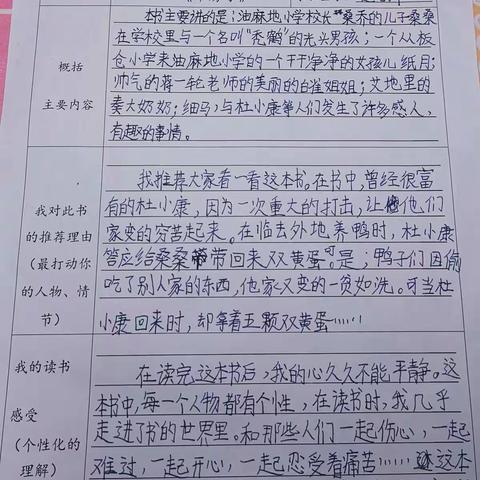 概括
主要内容
本书主要讲的是：油麻地小学校长“桑乔的儿子桑桑
在学校里与一个名叫“秃鹤”的光头男孩；一个从板
仓小学来油麻地小学的一个干干净净的女孩儿纸月；
帅气的蒋一轮老师的美丽的白雀姐姐；艾地里的
秦大奶奶；细马，与杜小康等人们发生了许多感人，
有趣的事情。
我对此书
的推荐理由
（最打动你
的人物、情
节）
我推荐大家看一看这本书。在书中，曾经很富
有的杜小康，因为一次重大的打击，让他们
家变的穷苦起来。在临去外地养鸭时，杜小康
答应给桑桑带回来双黄蛋。可是；鸭子们因偷
吃了别人家的东西，他家又变的一贫如洗。可当杜
小康回来时，却拿着五颗双黄蛋……
我的读书
感受
（个性化的
理解）
在读完这本书后，我的心久久不能平静。这
本书中，每一个人物都有个性，在读书时，我几乎
走进了书的世界里。和那些人们一起伤心，一起
难过，一起开心，一起忍受着痛苦……这本